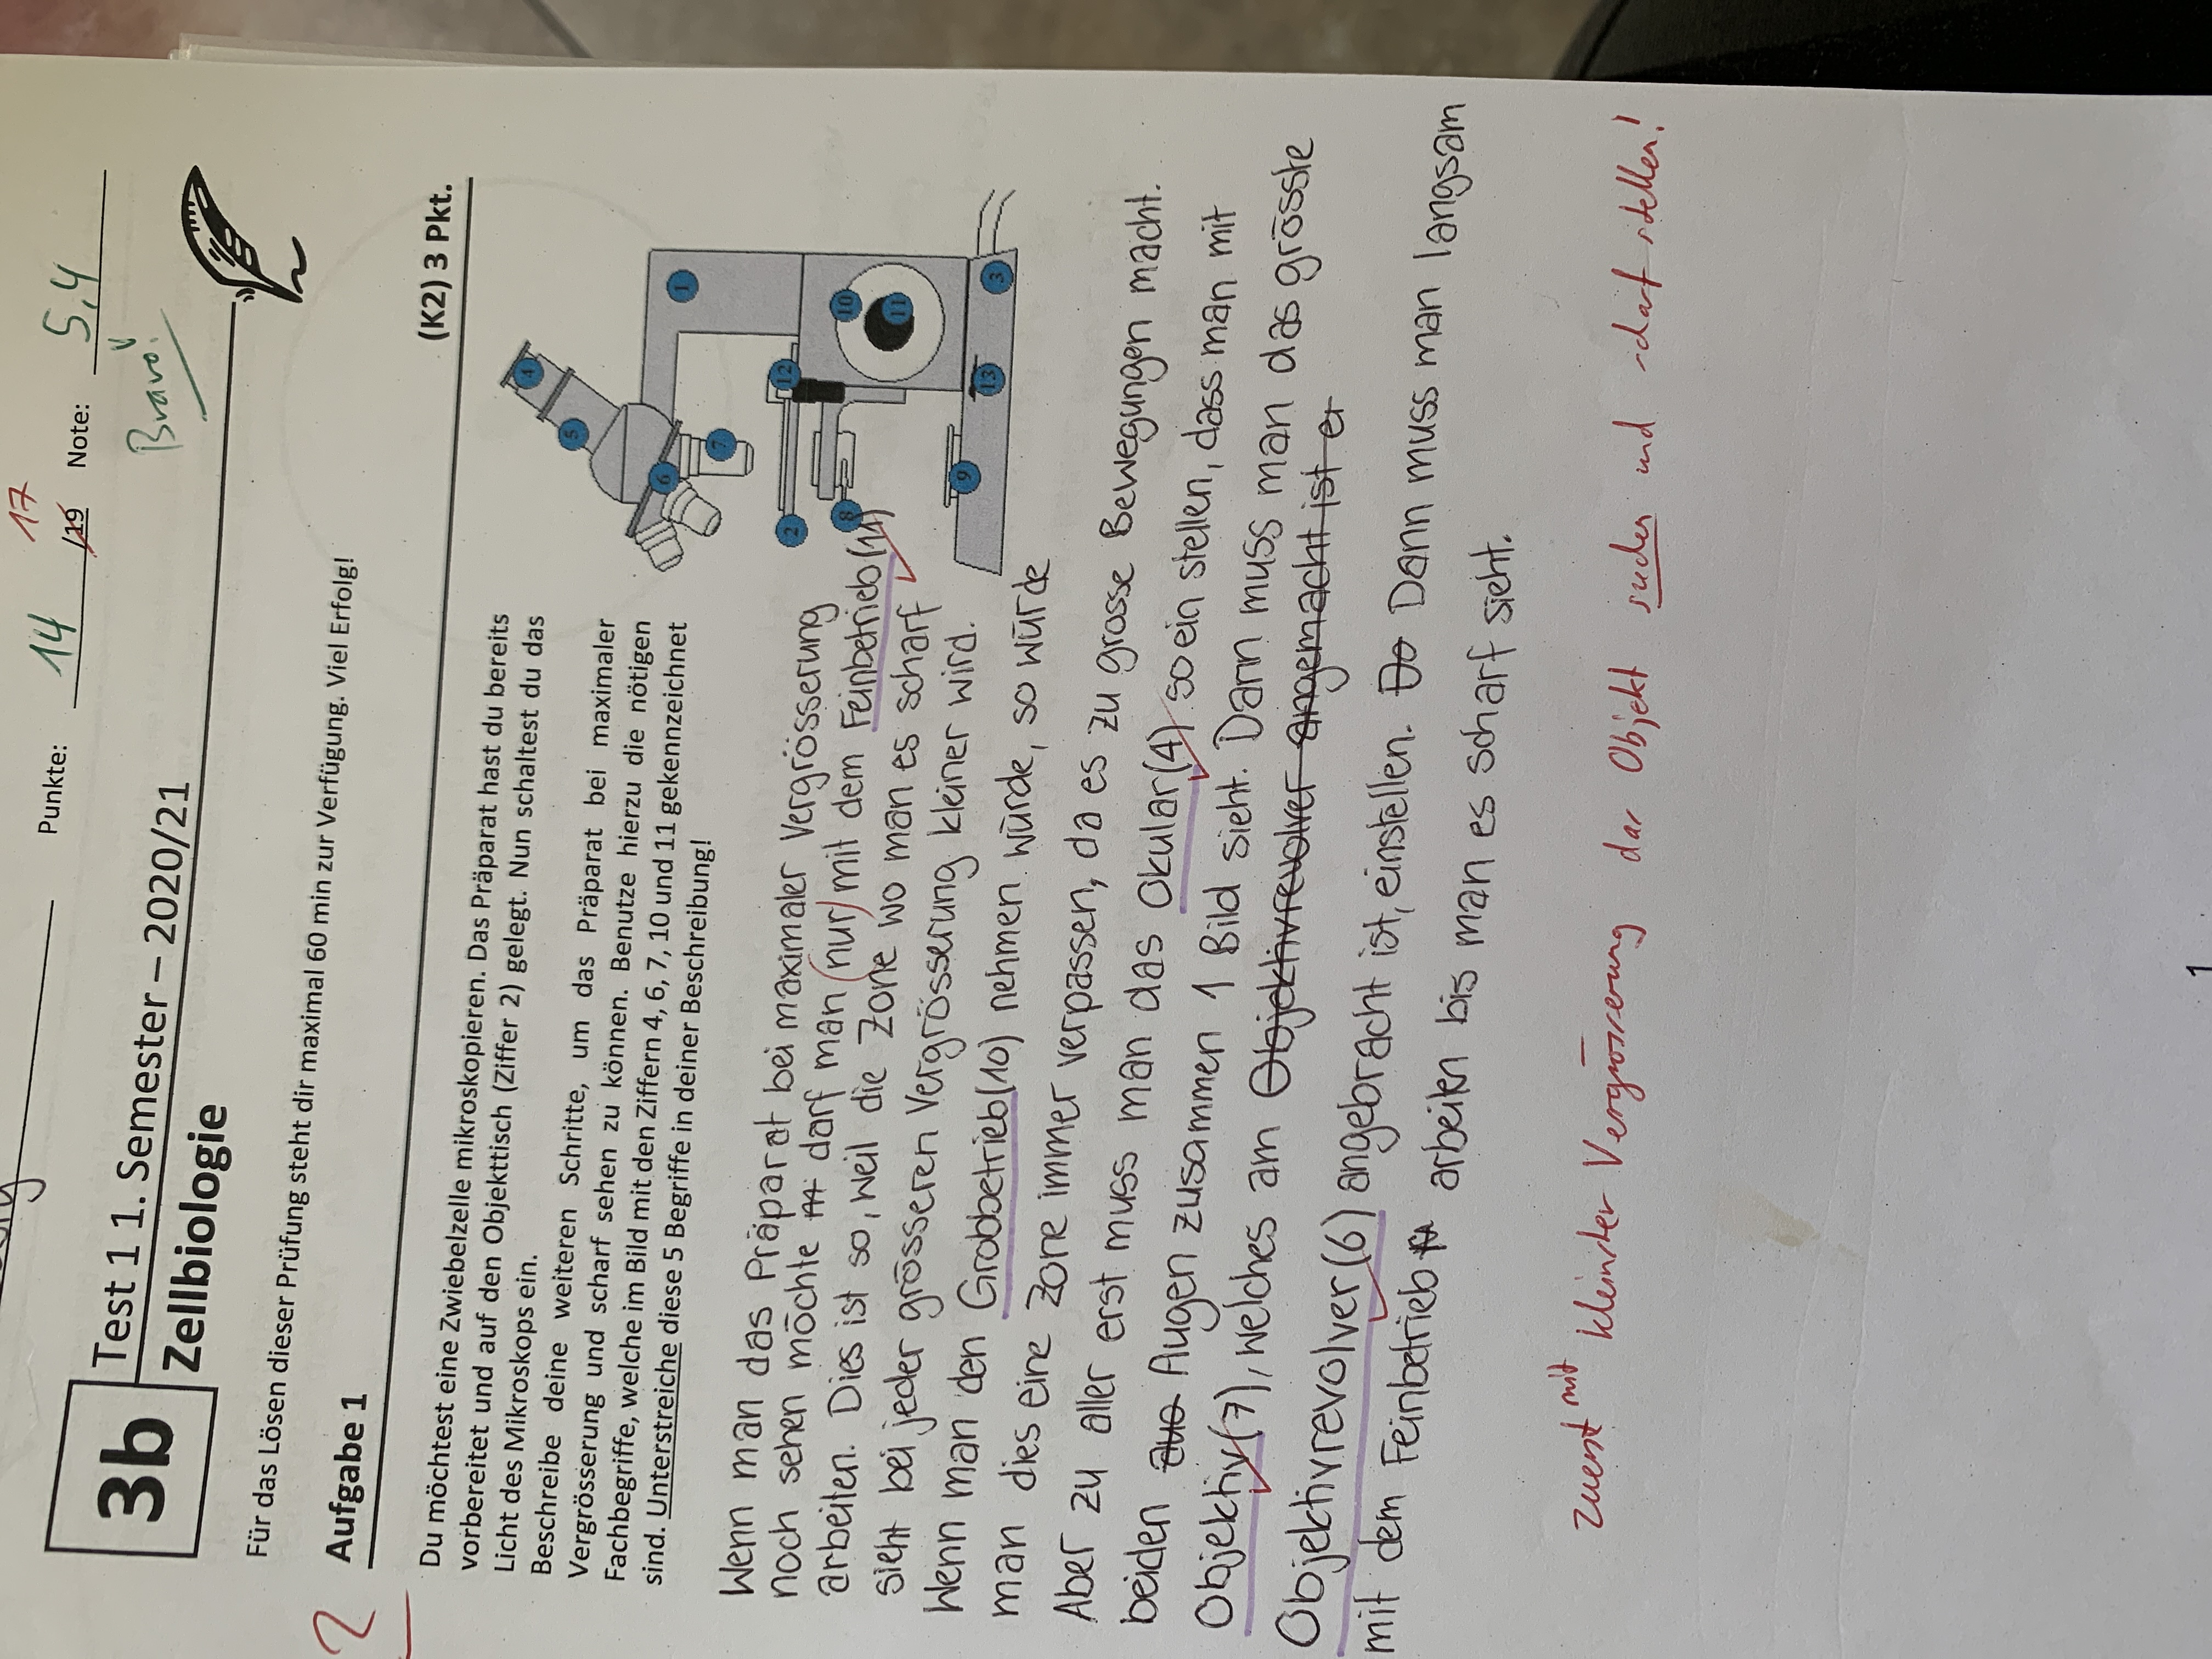 Punkte: 14 /19 17 Note: 5,4
Bravo!
3b
Test 1 1. Semester – 2020/21
Zellbiologie
Für das Lösen dieser Prüfung steht dir maximal 60 min zur Verfügung. Viel Erfolg!
2
Aufgabe 1
(K2) 3 Pkt.
Du möchtest eine Zwiebelzelle mikroskopieren. Das Präparat hast du bereits
vorbereitet und auf den Objekttisch (Ziffer 2) gelegt. Nun schaltest du das
Licht des Mikroskops ein.
Beschreibe deine weiteren Schritte, um das Präparat bei maximaler
Vergrösserung und scharf sehen zu können. Benutze hierzu die nötigen
Fachbegriffe, welche im Bild mit den Ziffern 4, 6, 7, 10 und 11 gekennzeichnet
sind. Unterstreiche diese 5 Begriffe in deiner Beschreibung!
4
5
6
1
7
2
12
8
10
11
9
13
3
Wenn man das Präparat bei maximaler Vergrösserung
noch sehen möchte darf man (nur) mit dem Feinbetrieb (11)
arbeiten. Dies ist so, weil die Zone wo man es scharf
sieht bei jeder grösseren Vergrösserung kleiner wird.
Wenn man den Grobbetrieb (10) nehmen würde, so würde
man dies eine Zone immer verpassen, da es zu grosse Bewegungen macht.
Aber zu aller erst muss man das Okular (4) so ein stellen, dass man mit
beiden Augen zusammen 1 Bild sieht. Dann muss man das grösste
Objektiv (7), welches am Objektivrevolver angemacht ist er
Objektivrevolver (6) angebracht ist, einstellen. Do Dann muss man langsam
mit dem Feinbetrieb arbeiten bis man es scharf sieht.
zuerst mit kleinster Vergrösserung das Objekt suchen und scharf stellen!
1